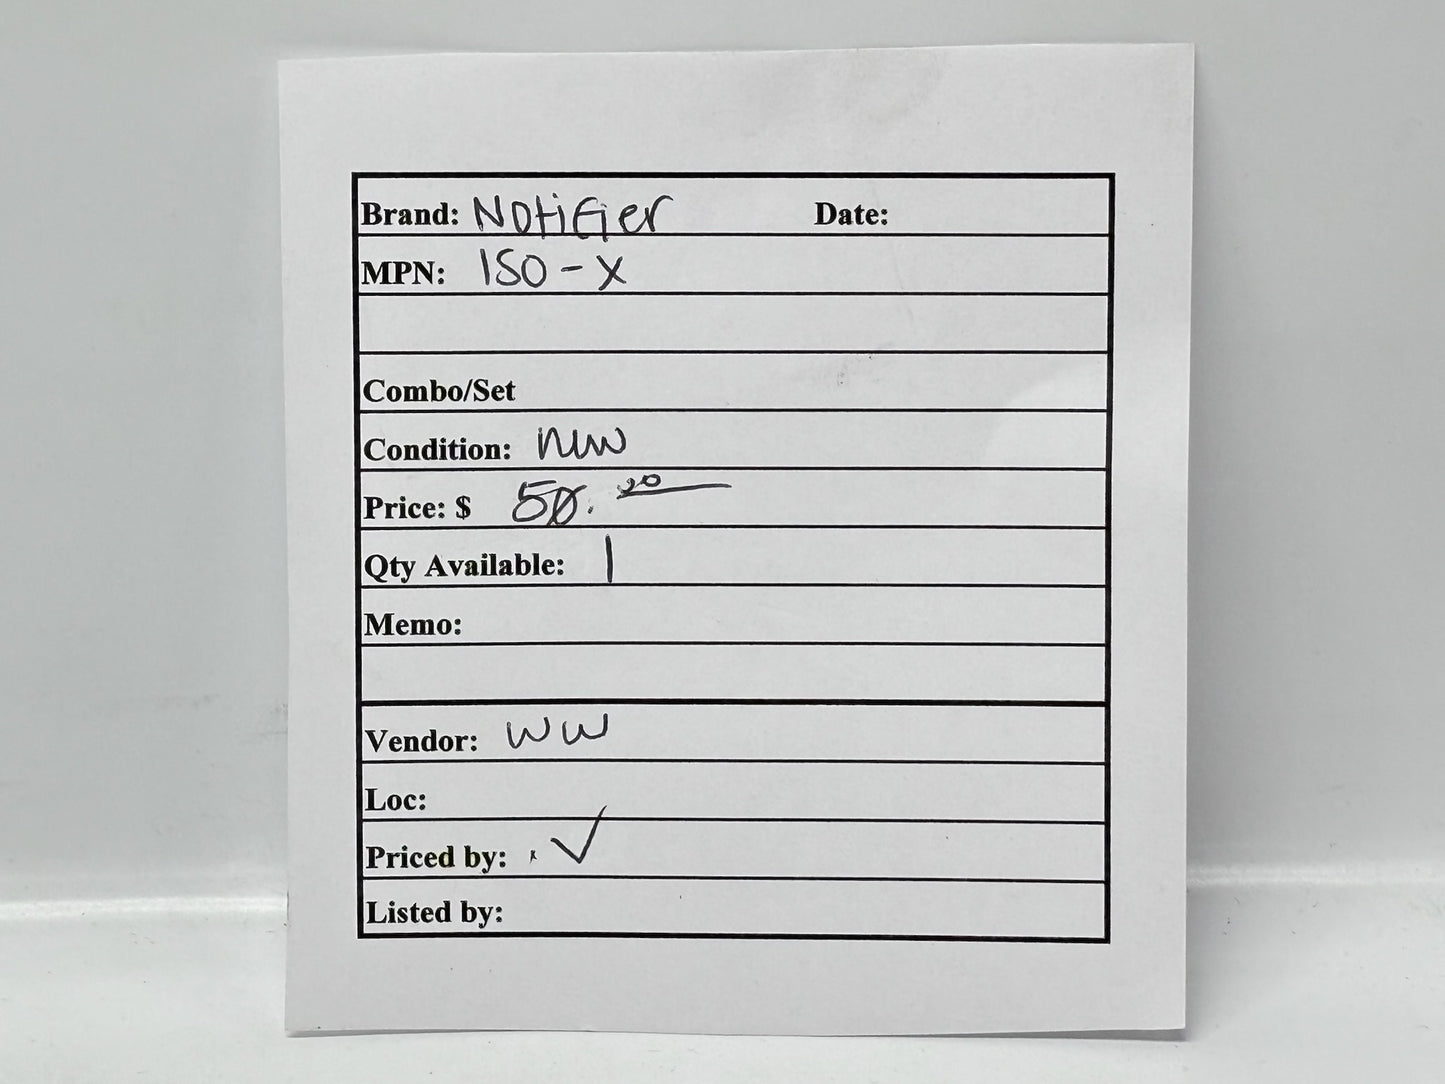 Brand: Notifier Date:
MPN: ISO-X
Combo/Set
Condition: NW
Price: $ 50.00
Qty Available: 1
Memo:
Vendor: WW
Loc:
Priced by: ✓
Listed by: